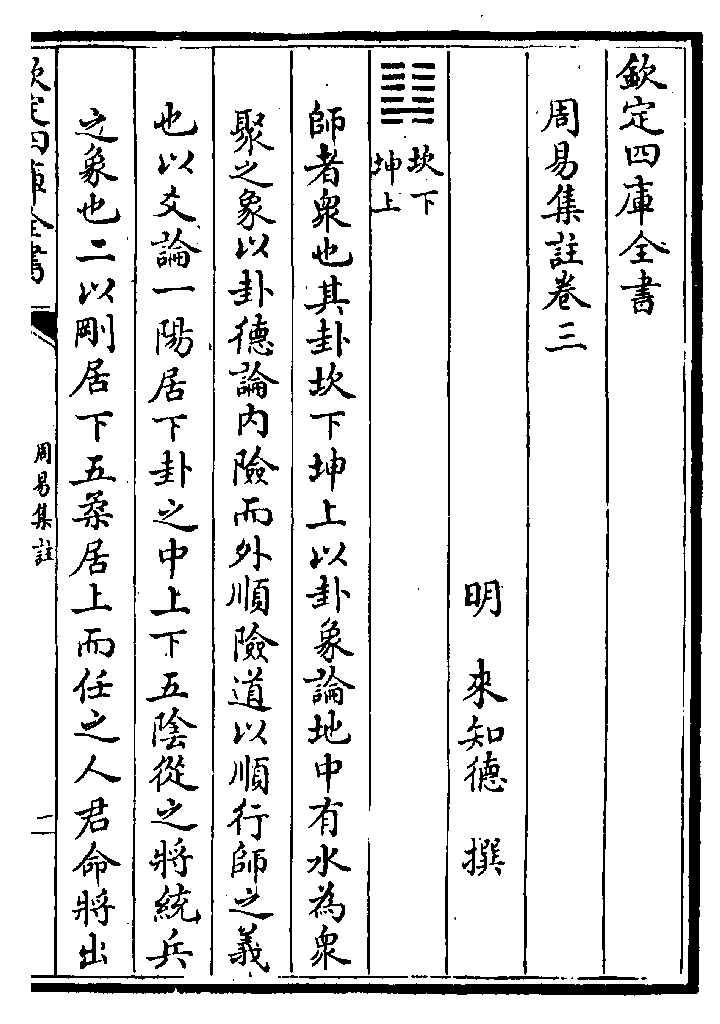 欽定四庫全書
周易集註卷三
明 來知德 撰
䷆ 坎下
坤上
師者衆也其卦坎下坤上以卦象論地中有水為衆
聚之象以卦德論内險而外順險道以順行師之義
也以爻論一陽居下卦之中上下五陰從之將統兵
之象也二以剛居下五柔居上而任之人君命將出
欽定四庫全書
周易集註
二